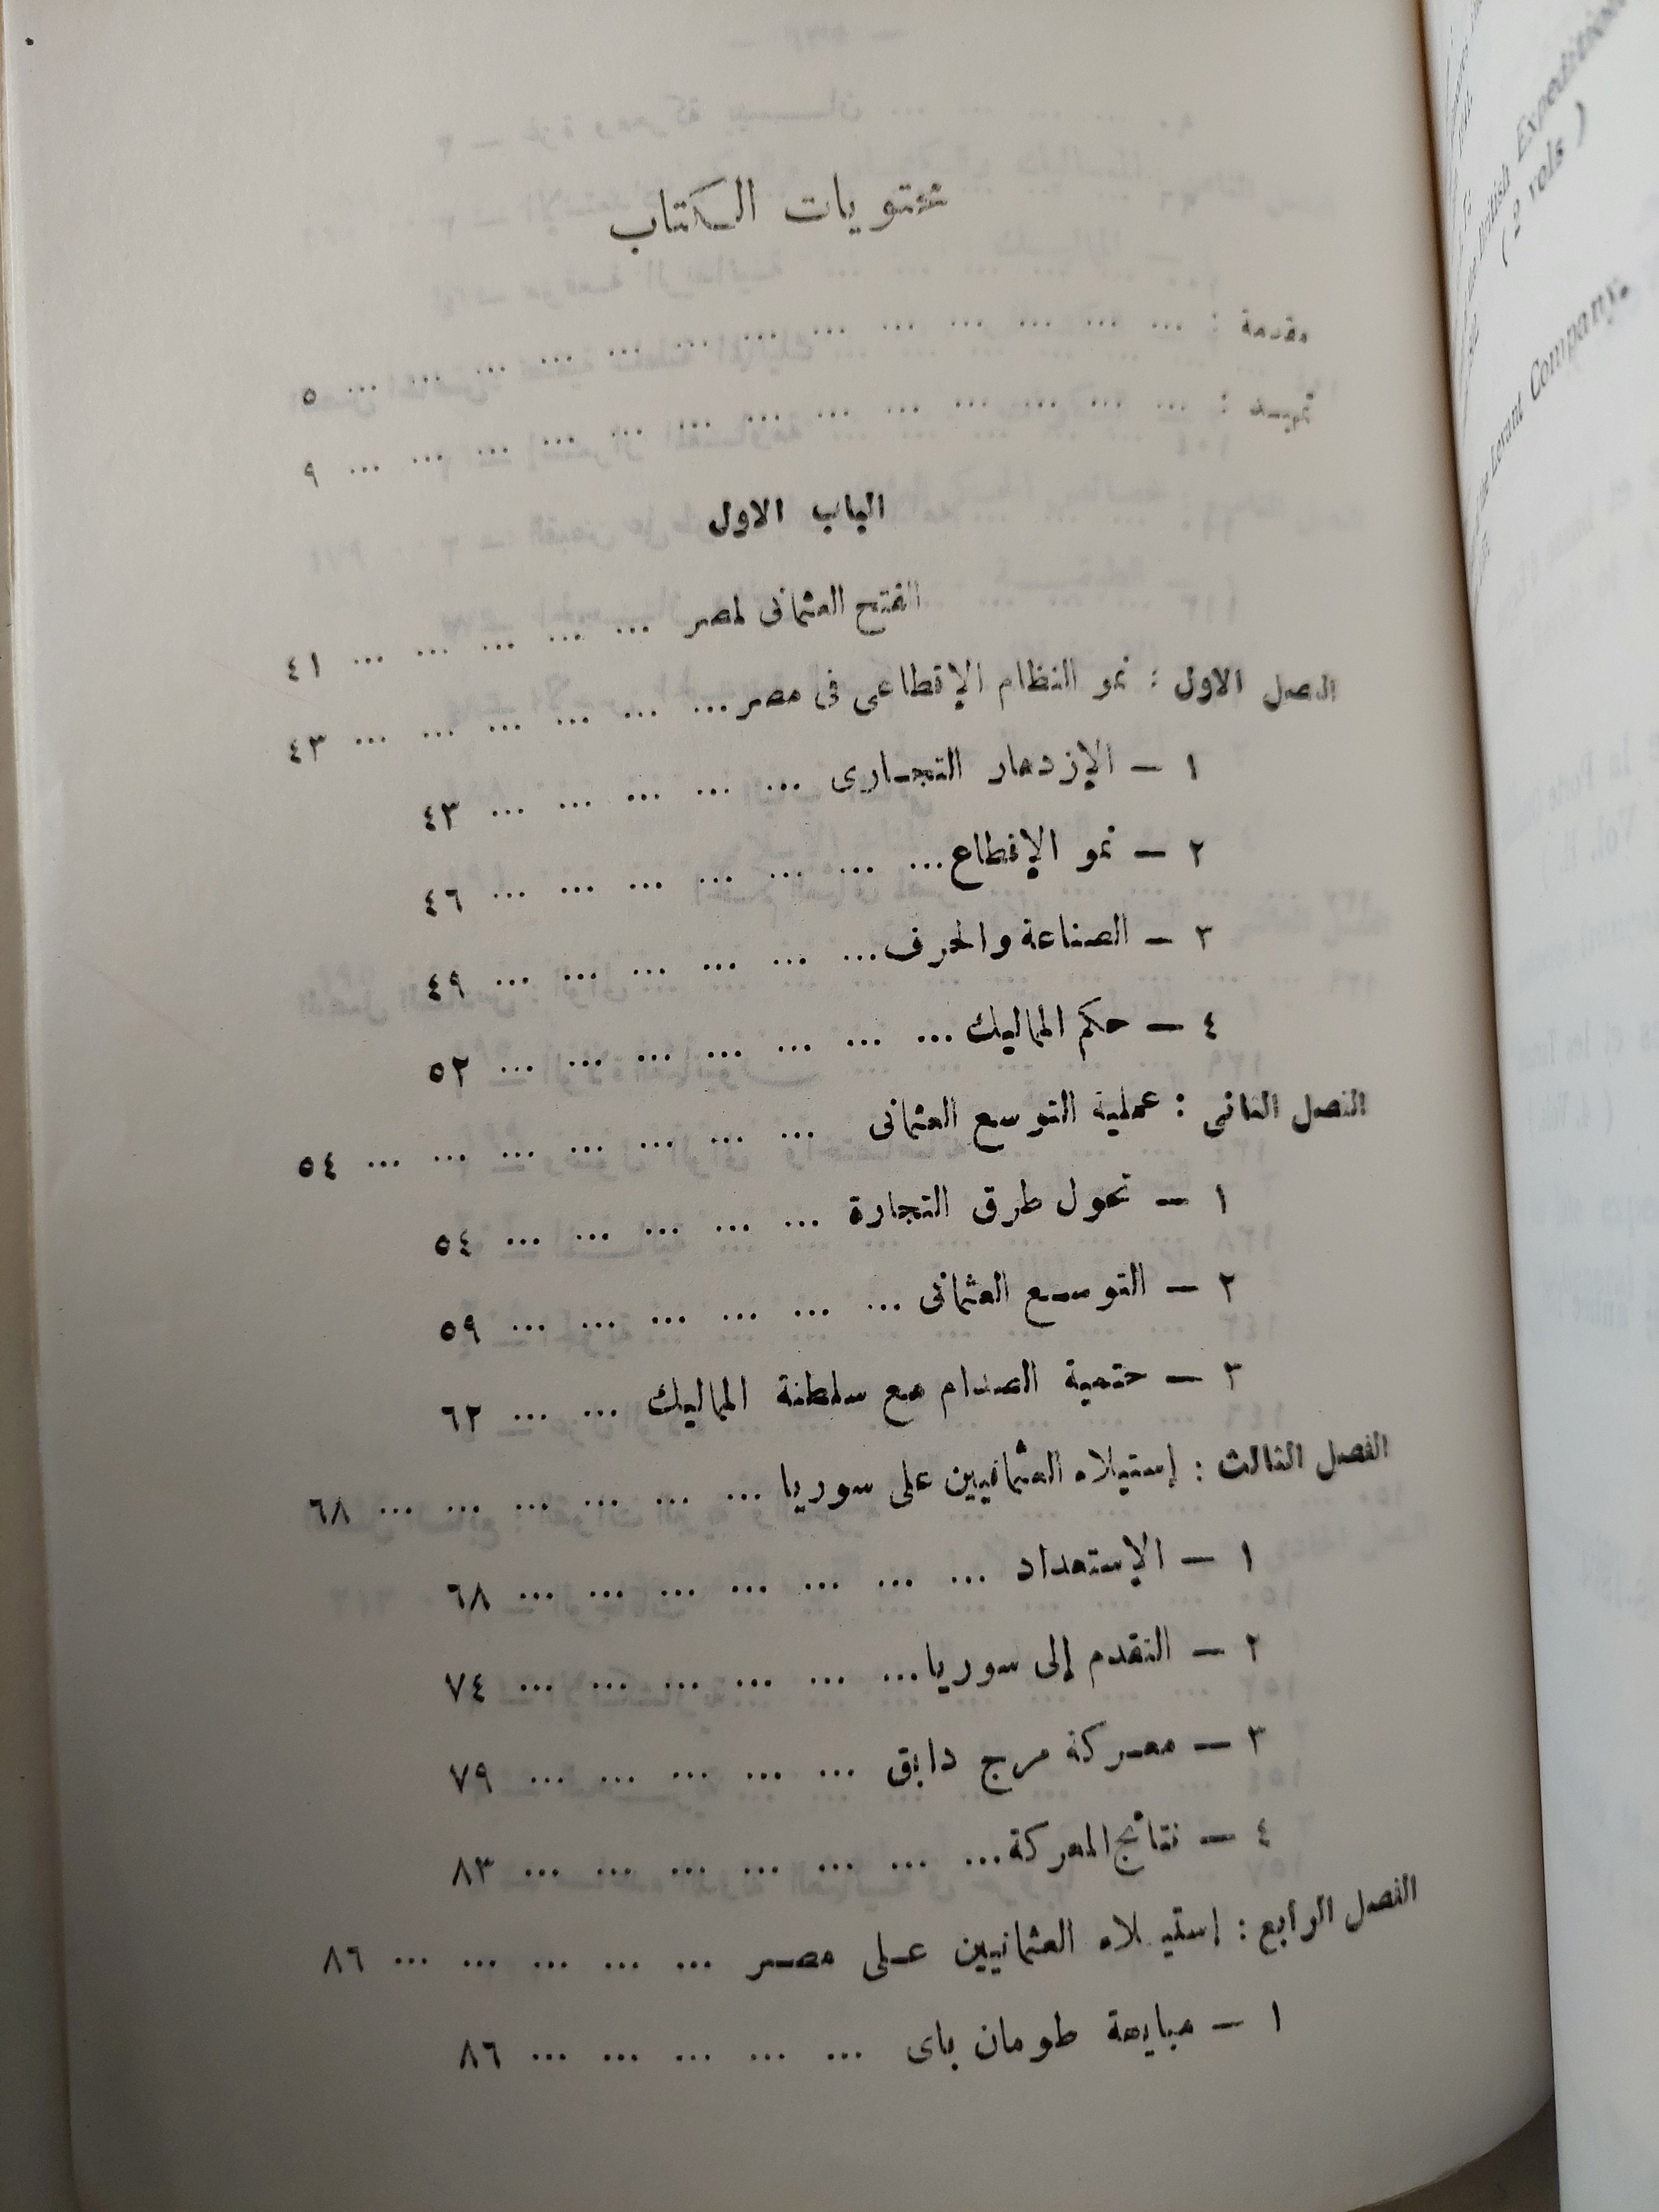 محتويات الكتاب
مقدمة : ... ... ... ... ... ... ... ... ... ... ... ... ... ٥
تمهيد : ... ... ... ... ... ... ... ... ... ... ... ... ... ٩
الباب الاول
الفتح العثمانى لمصر ... ... ... ... ... ٤١
الفصل الاول : نمو النظام الإقطاعى فى مصر ... ... ... ... ... ... ٤٣
١ — الإزدهار التجارى ... ... ... ... ... ٤٣
٢ — نمو الإقطاع ... ... ... ... ... ... ... ٤٦
٣ — الصناعة والحرف ... ... ... ... ... ... ٤٩
٤ — حكم المماليك ... ... ... ... ... ... ... ٥٢
الفصل الثانى : عملية التوسع العثمانى ... ... ... ... ... ... ... ٥٤
١ — تحول طرق التجارة ... ... ... ... ... ٥٤
٢ — التوسع العثمانى ... ... ... ... ... ... ٥٩
٣ — حتمية الصدام مع سلطنة المماليك ... ... ٦٢
الفصل الثالث : إستيلاء العثمانيين على سوريا ... ... ... ... ... ... ٦٨
١ — الإستعداد ... ... ... ... ... ... ... ٦٨
٢ — التقدم إلى سوريا ... ... ... ... ... ... ٧٤
٣ — معركة مرج دابق ... ... ... ... ... ٧٩
٤ — نتائج المعركة ... ... ... ... ... ... ... ٨٣
الفصل الرابع : إستيلاء العثمانيين على مصر ... ... ... ... ... ٨٦
١ — مبايعة طومان باى ... ... ... ... ... ٨٦
British Expedition
( 2 vols )
the Levant Company.
la Porte
Vol. II.
et les